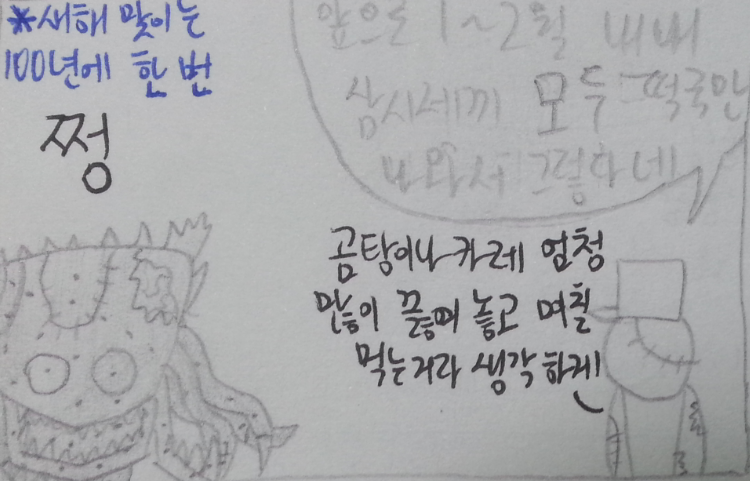 *새해 맞이는
100년에 한 번
쩡
앞으로 1~2월 내내
삼시세끼 모두 떡국만
나와서 그렇다네
곰탕이나 카레 엄청
많이 끓여 놓고 며칠
먹는거라 생각하게